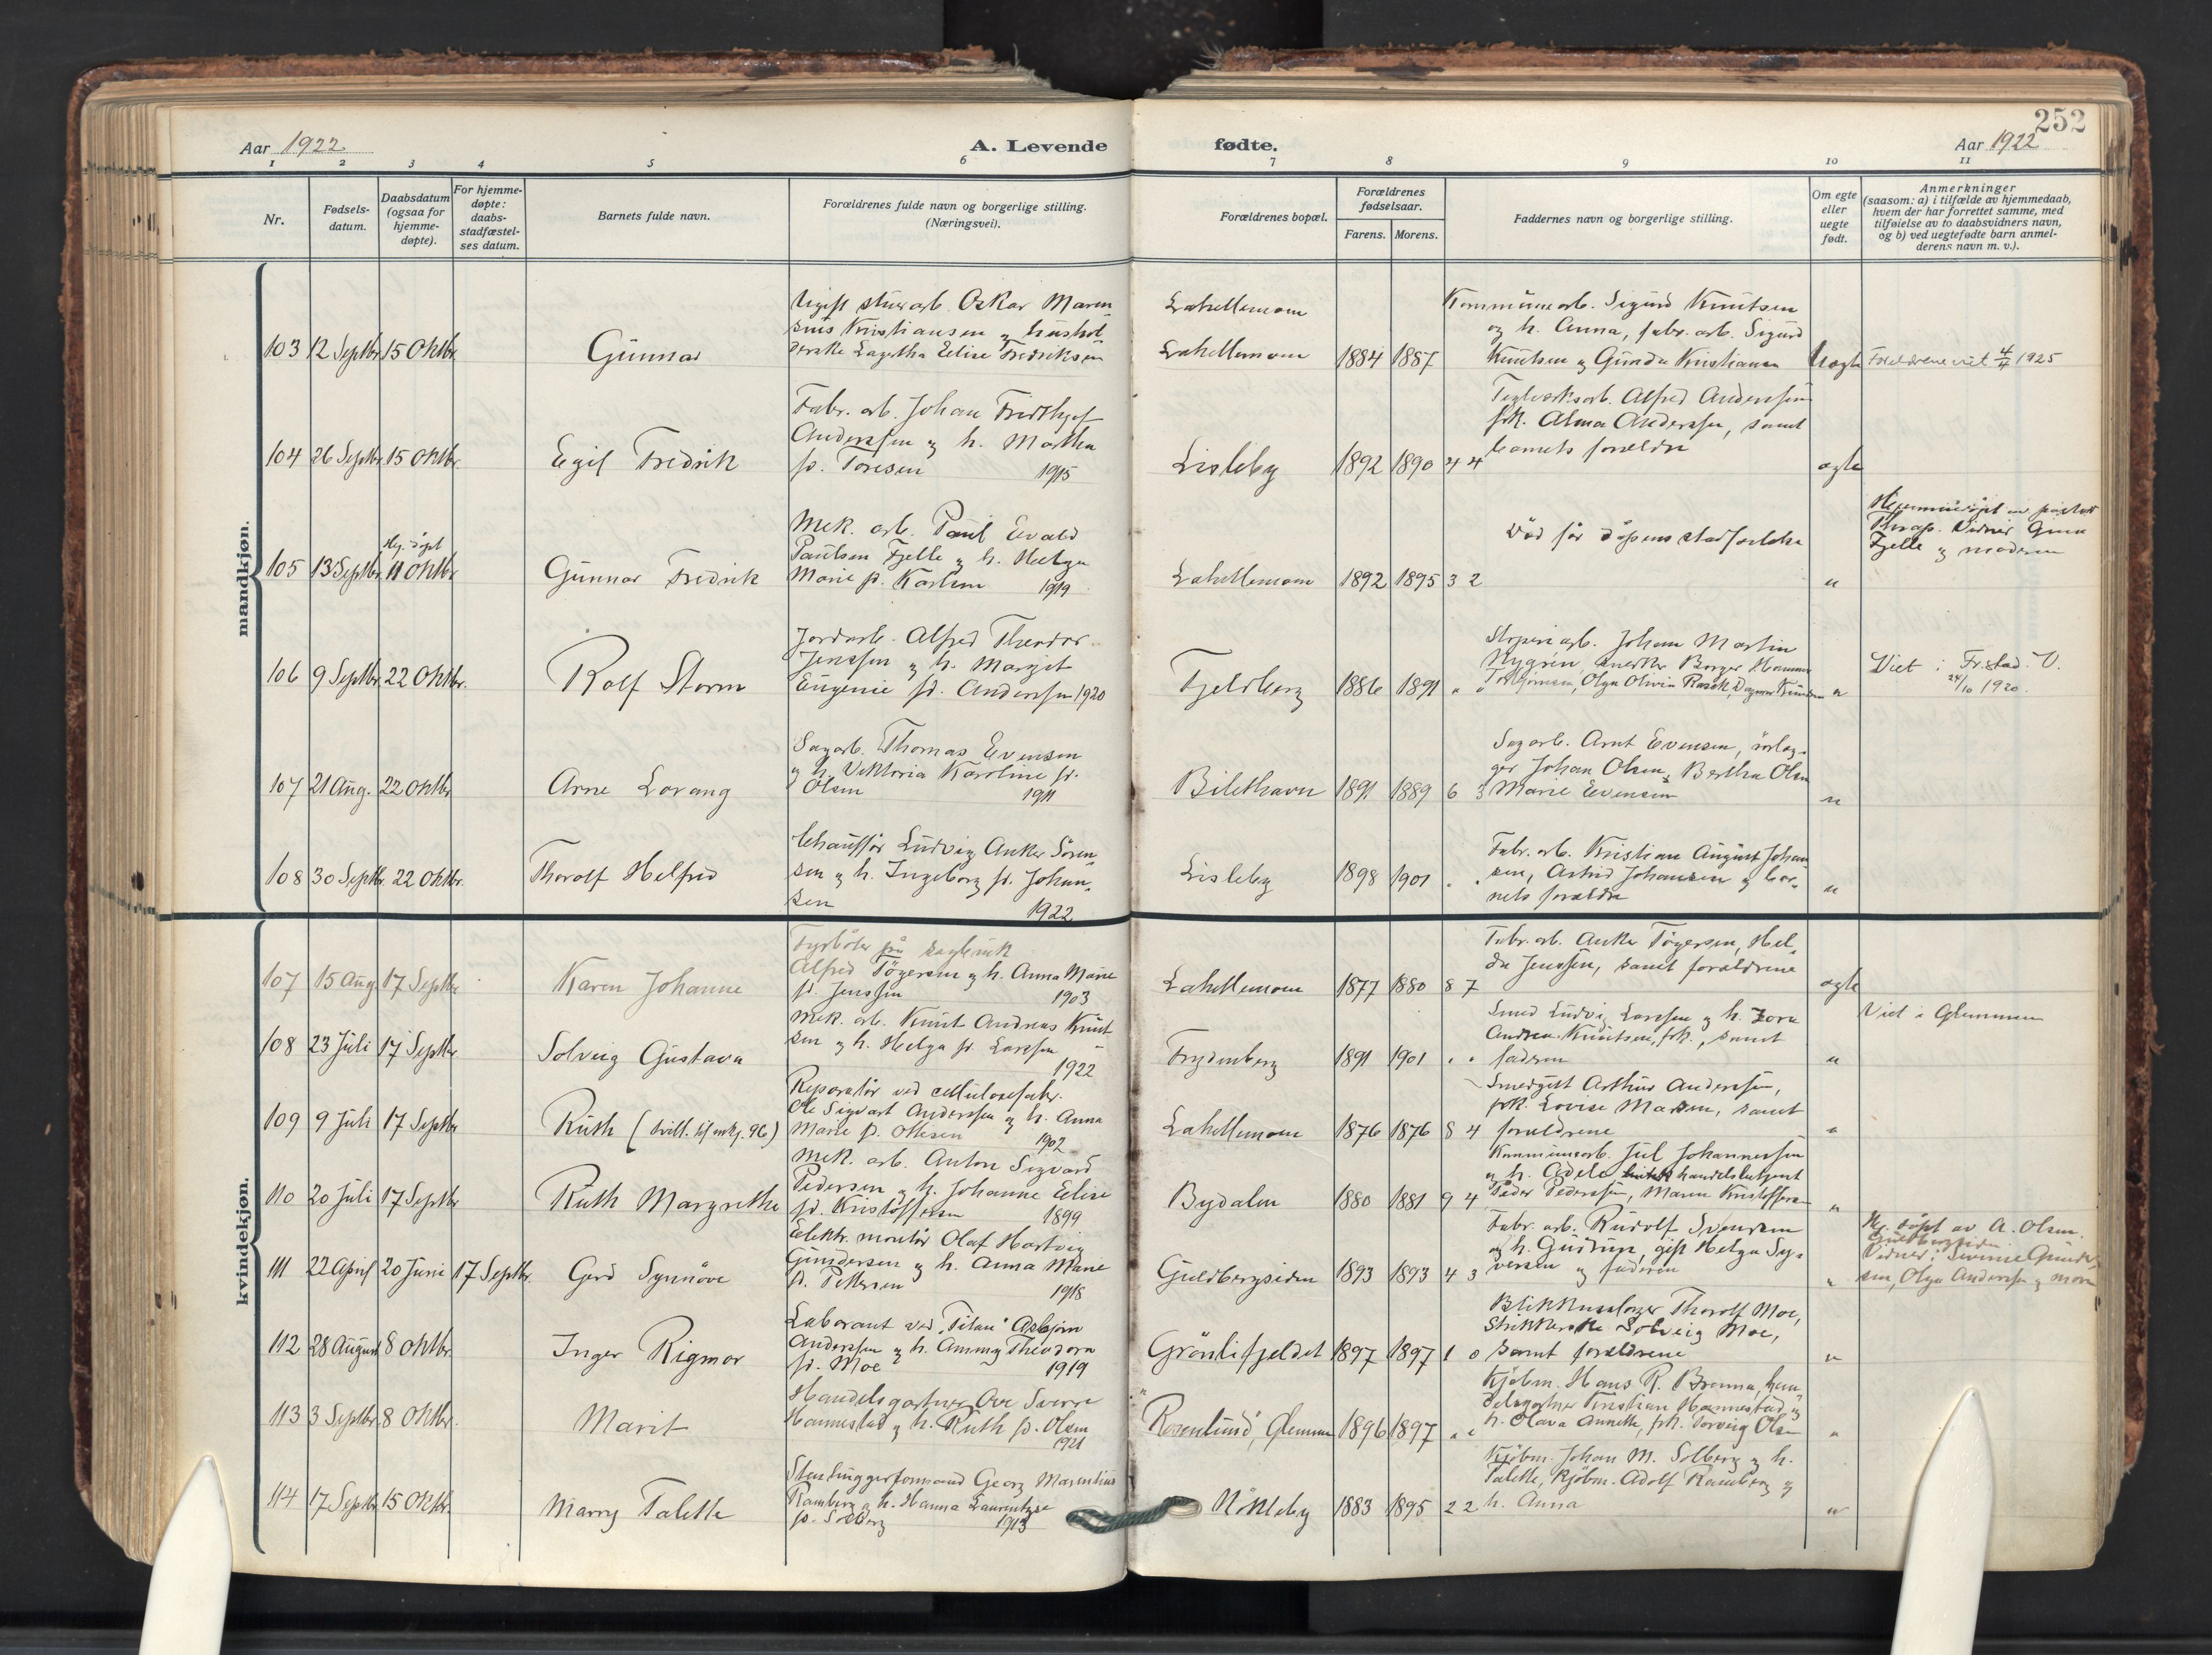 252
Aar 1922
A. Levende
fødte.
Aar 1922
1 2 3 4 5 6 7 8 9 10 11
Nr.
Fødsels-
datum.
Daabsdatum
(ogsaa for
hjemme-
døpte).
For hjemme-
døpte:
daabs-
stadfæstel-
ses datum.
Barnets fulde navn.
Forældrenes fulde navn og borgerlige stilling.
(Næringsvei).
Forældrenes bopæl.
Forældrenes
fødselsaar.
Farens. Morens.
Faddernes navn og borgerlige stilling.
Om egte
eller
uegte
født.
Anmerkninger
(saasom: a) i tilfælde av hjemmedaab,
hvem der har forrettet samme, med
tilføielse av to daabsvidners navn,
og b) ved uegtefødte barn anmel-
derens navn m. v.).
mandkjøn.
103 12 Septbr. 15 Oktbr.
Gunnar
Ugift stuerarb. Oskar Maren
sius Kristiansen og hushol-
derske Lagertha Elise Fredriksen
Lahellemoen
Lahellemoen
1884 1887
Kommunearb. Sigurd Knutsen
og h. Anna, fabr. arb. Sigurd
Knutsen og Gunda Kristiansen
Uægte
Forældrene viet 4/4 1925
104 26 Septbr. 15 Oktbr.
Egil Fredrik
Fabr. arb. Johan Fridthjof
Anderssen og h. Martha
f. Toresen 1915
Lisleby
1892 1890 4 4
Teglverksarb. Alfred Anderssen
frk. Alma Anderssen, samt
barnets forældre
ægte
105 13 Septbr. Hj. døpt 11 Oktbr.
Gunnar Fredrik
Mek. arb. Paul Evald
Paulsen Fjelle og h. Helga
Marie f. Karlsen 1919
Lahellemoen
1892 1895 3 2
Død før dåpens stadfæstelse
"
Hjemmedøpt av pastor
Thrap. Vidner Gina
Fjelle og moderen
106 9 Septbr. 22 Oktbr.
Rolf Storm
Jordarb. Alfred Theodor
Jenssen og h. Margit
Eugenie f. Anderssen 1920
Fjeldberg
1886 1891 " "
Sliperiarb. Johan Martin
Nygren, snekker Borger Hammer
Torbjørnsen, Olga Olivia Rasck, Dagmar Knudsen
"
Viet i Fr.stad V.
24/10 1920.
107 21 Aug. 22 Oktbr.
Arne Lorang
Sagarb. Thomas Evensen
og h. Viktoria Karoline f.
Olsen 1911
Bilethavn
1891 1889 6 3
Sagarb. Arnt Evensen, urlæg-
ger Johan Olsen, Bertha Olsen
Marie Evensen
"
108 30 Septbr. 22 Oktbr.
Thorolf Helfred
Chauffør Ludvig Anker Søren-
sen og h. Ingeborg f. Johan-
sen 1922
Lisleby
1898 1901 " "
Fabr. arb. Kristian August Johan
sen, Astrid Johansen og bar-
nets forældre
"
kvindekjøn.
107 15 Aug. 17 Septbr.
Karen Johanne
Fyrbøter på sagbruk
Alfred Tøgersen og h. Anna Marie
f. Jenssen 1903
Lahellemoen
1877 1880 8 7
Fabr. arb. Anker Tøgersen, Hel-
da Jenssen, samt forældrene
ægte
108 23 Juli 17 Septbr.
Solveig Gustava
Mek. arb. Knut Andreas Knut
sen og h. Helga f. Larssen
1922
Frydenberg
1891 1901 " "
Smed Ludvig Larssen og h. Zora
Andrea Knutsen, frk., samt
fadren
"
Viet i Glemmen
109 9 Juli 17 Septbr.
Ruth (tvill. til mkj. 96)
Reparatør ved cellulosefabr.
Ole Sigvart Anderssen og h. Anna
Marie f. Ottesen 1902
Lahellemoen
1876 1876 8 4
Smedgutt Arthur Anderssen,
frk. Lovise Madsen, samt
forældrene
"
110 20 Juli 17 Septbr.
Ruth Margrethe
Mek. arb. Anton Sigvard
Pedersen og h. Johanne Elise
f. Kristoffersen 1899
Bydalen
1880 1881 9 4
Kommunearb. Jul Johannessen
og h. Adele handelsbetjent
Peder Pederssen, Maren Kristoffersen
"
111 22 April 20 Juni 17 Septbr.
Gerd Synnøve
Elektr. montør Olaf Hartvig
Gundersen og h. Anna Marie
f. Pettersen 1918
Guldbergsiden
1893 1893 4 3
Fabr. arb. Rudolf Svendsen
og h. Gudrun, gift Helga Sy-
versen og faderen
"
Hj. døpt av A. Olsen.
Guldbergsiden
Vidner: Signe Gunder
sen, Olga Anderssen og moren
112 28 August 8 Oktbr.
Inger Rigmor
Laborant ved "Titan" Asbjørn
Anderssen og h. Ammy Theodora
f. Moe 1919
Grønlifjeldet
1897 1897 1 0
Blikkenslager Thorolf Moe,
Strikkerske Solveig Moe,
samt forældrene
"
113 3 Septbr. 8 Oktbr.
Marit
Handelsgartner Ove Sverre
Hannestad og h. Ruth f. Olsen
1921
"Rosenlund", Glemmen
1896 1897 " "
Kjøbm. Hans R. Brenna, han-
delsgartner Kristian Hannestad og
h. Olava Annette, frk. Solveig Olsen
"
114 17 Septbr. 15 Oktbr.
Marry Talette
Stenhuggerformand Georg Marentius
Ramberg og h. Hanna Laurentze
f. Solberg 1913
Nøkleby
1883 1895 2 2
Kjøbm. Johan M. Solberg og h.
Talette, kjøbm. Adolf Ramberg og
h. Anna
"